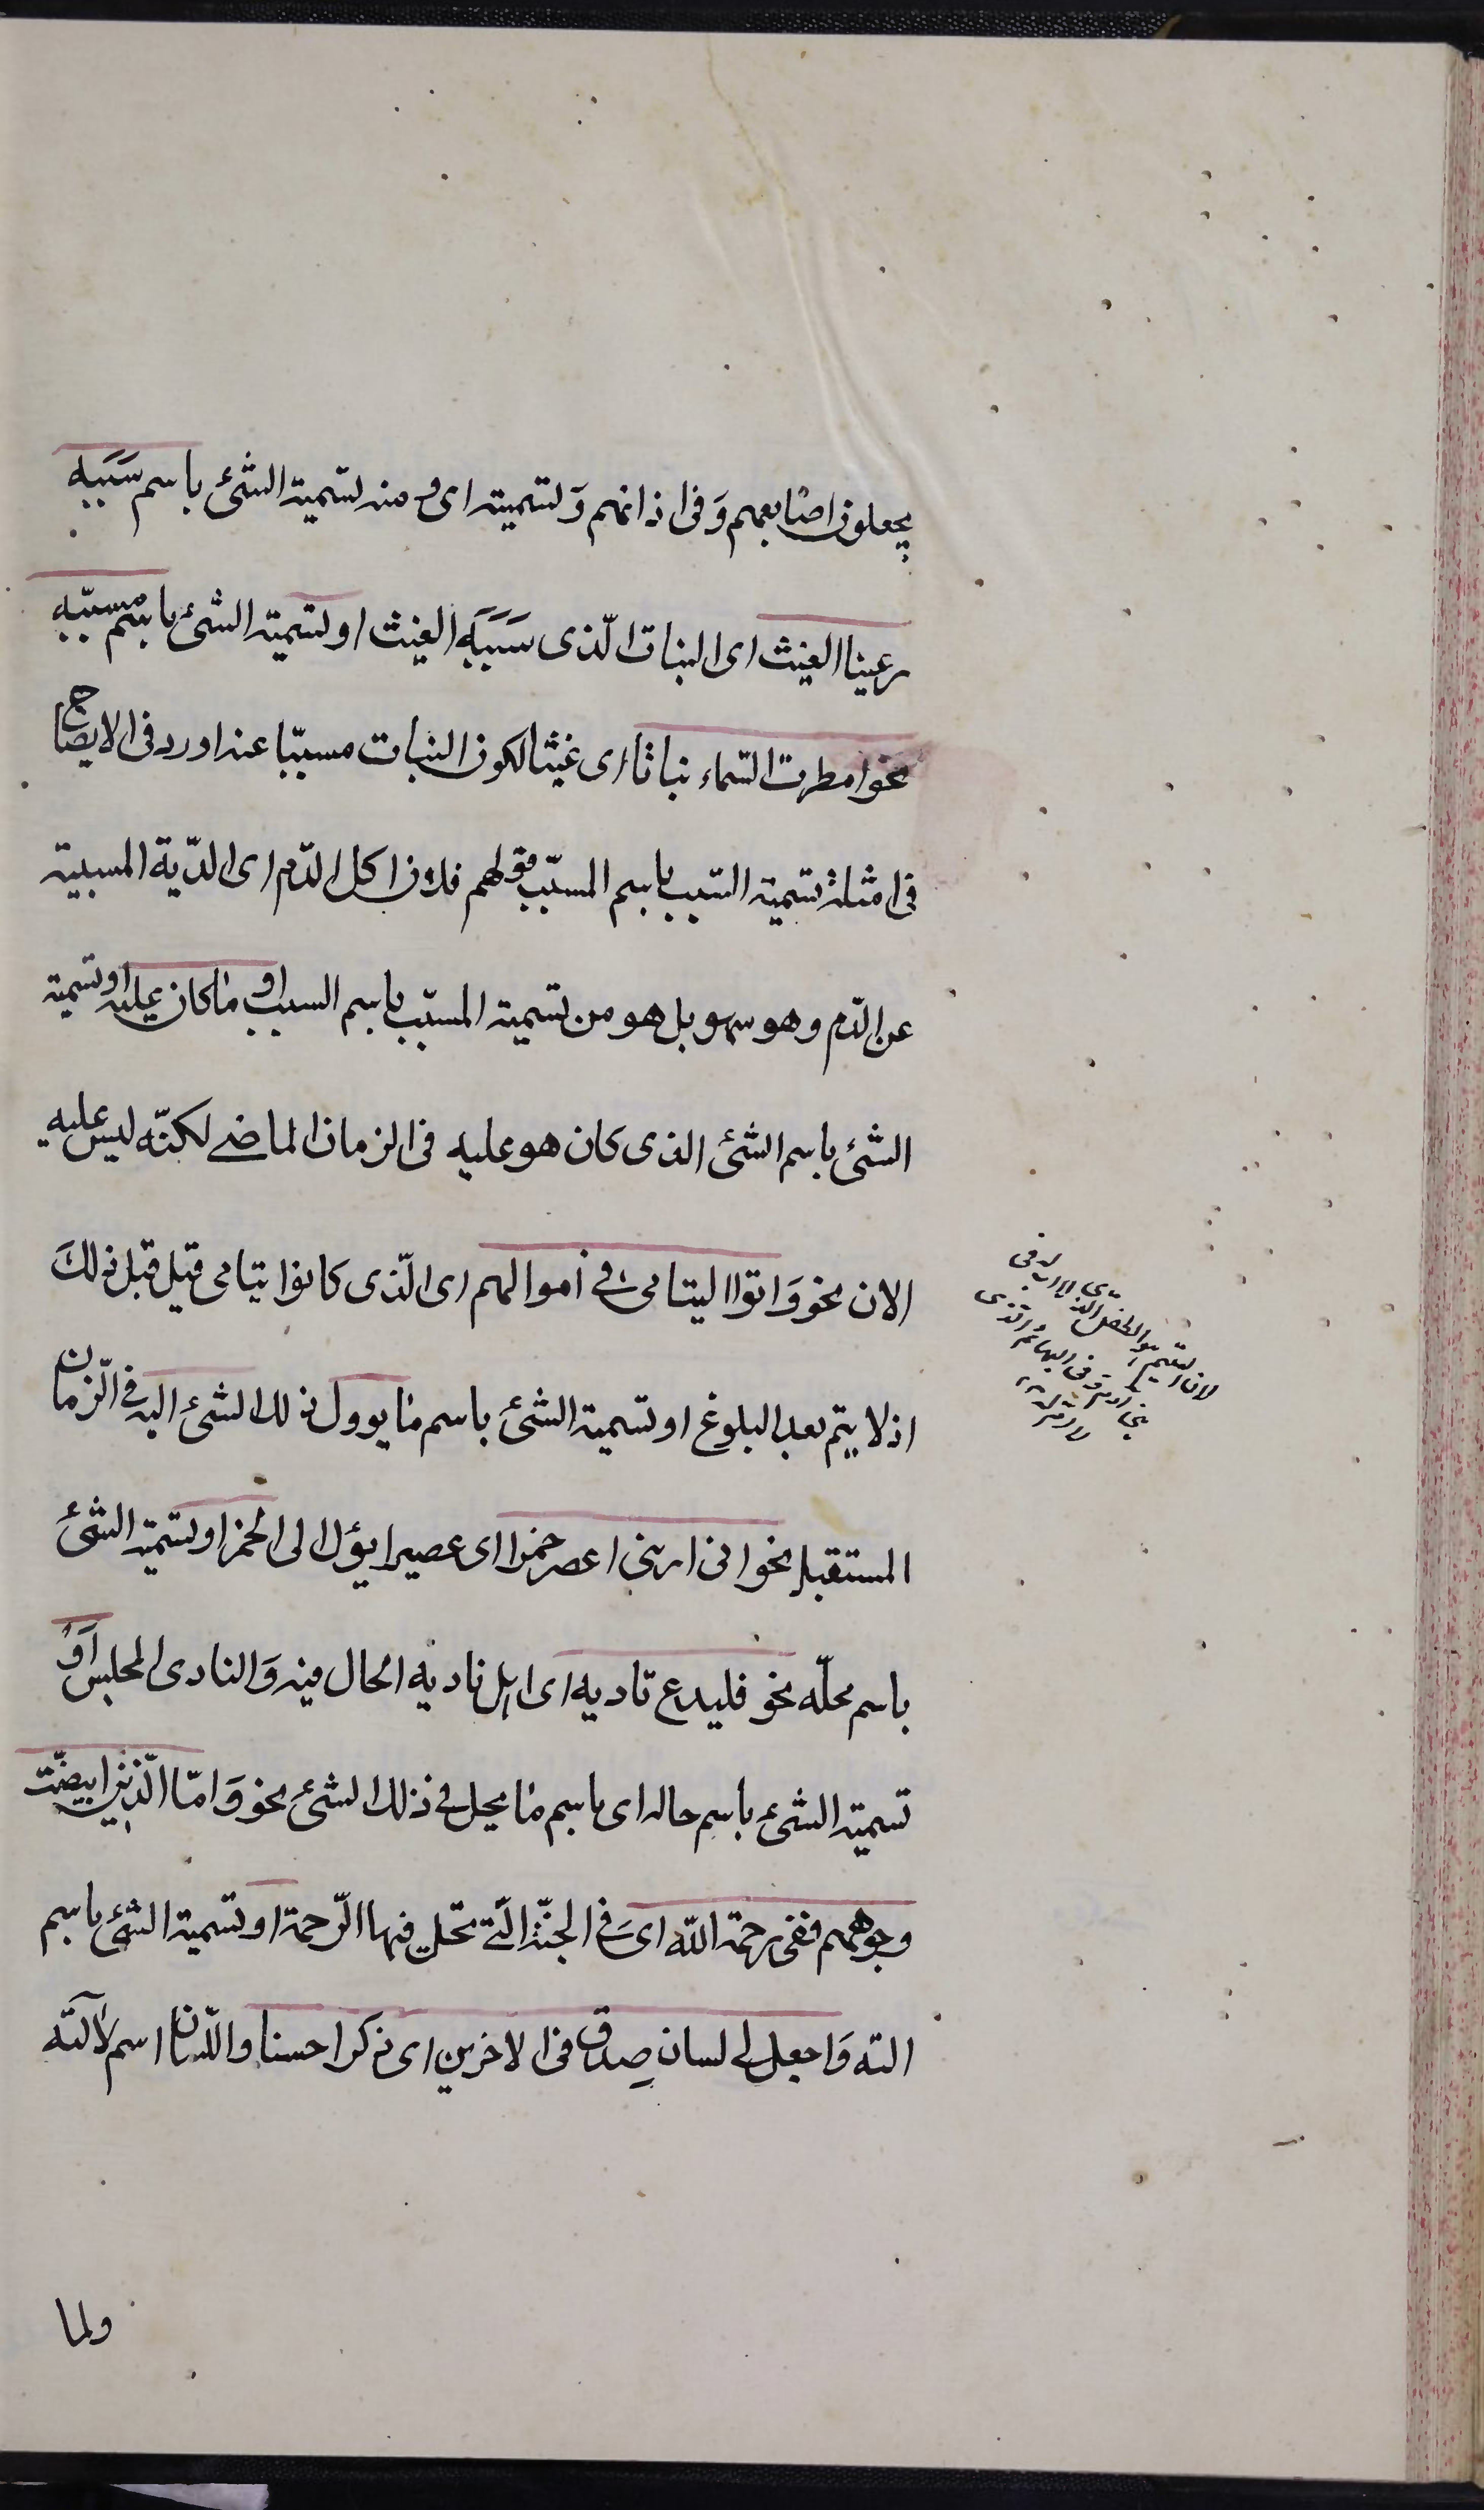 يجعلون اصابعهم و فى اذانهم وَ تسميته اى و منه تسمية الشئ باسم سَبَبِه
رعينا الغيث اى النبات الّذى سَبَبَه الغيث او تسمية الشئ باسم مسبّبه
نحو امطرت السّماء نباتا اى غيثا لكون النبات مسبّبا عنه اورد فى الايضاح
فى امثلة تسمية السّبب باسم المسبّب قولهم فلان اكل الدّم اى الدّية المسببية
عن الدّم و هو سهو بل هو من تسمية المسبّب باسم السبب او ما كان عليه او تسمية
الشئ باسم الشئ الذى كان هو عليه فى الزمان الماضے لكنّه ليس عليه
الان نحو وَ اتوا اليتامى فے أموالهم اى الّذى كانوا يتامى قبل قبل ذلكَ
اذ لا يتم بعد البلوغ او تسمية الشئ باسم ما يوول ذلك الشئ اليه فے الّزمان
المستقبل نحو انى ارىنى اعصر خمرا اى عصيرا يؤل الى الخمر او تسمية الشئ
باسم محلّه نحو فليدع ناديه اى اهل ناديه الحال فيه وَ النادى المجلس أوْ
تسمية الشئ باسم حاله اى باسم ما يحل فے ذلك الشئ نحو وَ امّا الّذين ابيضّت
وجوههم ففى رحمة الله اى فے الجنّة الّتے تحل فيها الّرحمة او تسمية الشئ باسم
الته وَ اجعل لے لسان صِدق فى الاخرين اى ذكرا حسنا و اللّسان اسم لآلته
ولما